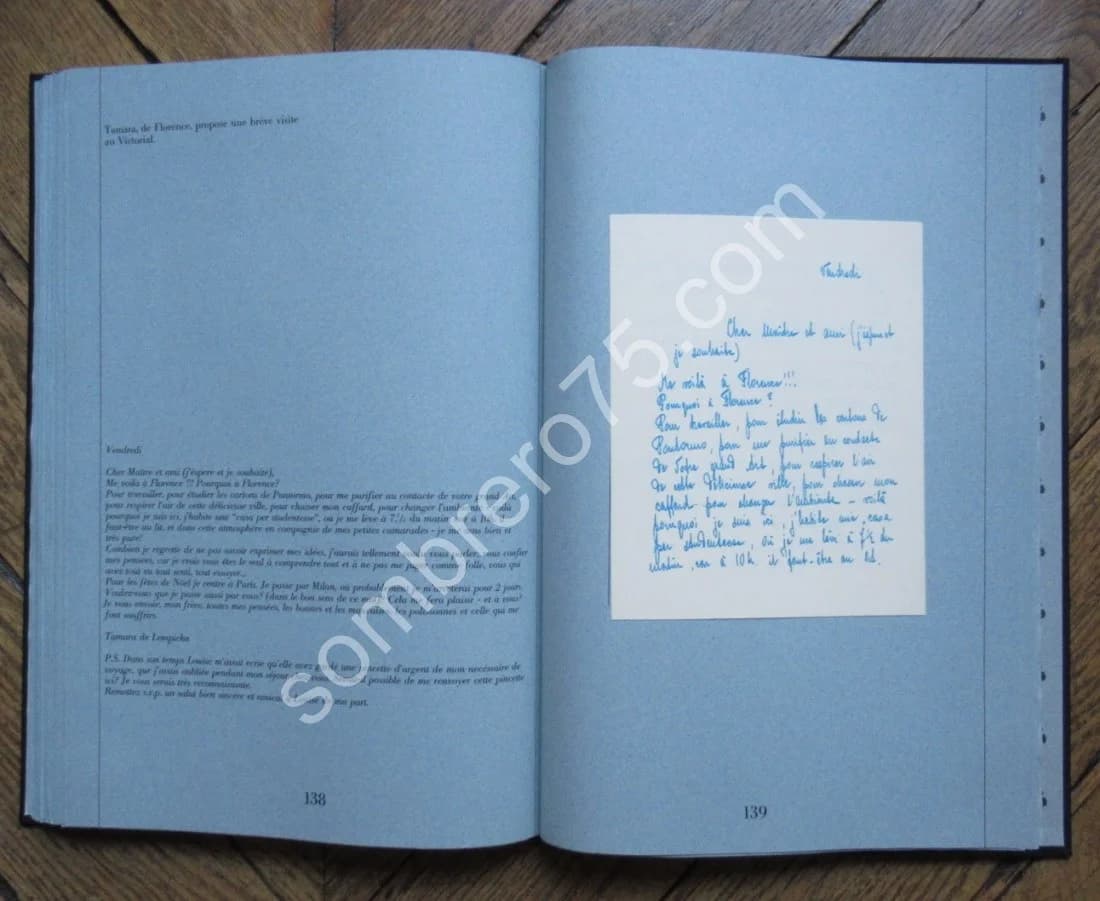 Tamara, de Florence, propose une brève visite
au Victorial.
Vendredi
Cher Maître et ami (j'éspere et je souhaite),
Me voilà à Florence !!! Pourquoi à Florence?
Pour travailler, pour étudier les cartons de Pontormo, pour me purifier au contacte de votre grand Art,
pour respirer l'air de cette délicieuse ville, pour chasser mon caffard, pour changer l'ambi
pourquoi je suis ici, j'habite une "casa per studentesse", ou je me lève à 7.½ du matin
faut-être au lit, et dans cette atmosphère en compagnie de mes petites camarades - je me sens bien et
très pure!
Combien je regrette de ne pas savoir exprimer mes idées, j'aurais tellement vous parler, vous confier
mes pensées, car je crois vous êtes le seul à comprendre tout et à ne pas me comme folle, vous qui
avez tout vu tout senti, tout essayé...
Pour les fêtes de Nöel je rentre à Paris. Je passe par Milan, où probable m'arrêterai pour 2 jours
Voulez-vous que je passe aussi par vous? (dans le bon sens de ce mot). Cela me fera plaisir - et à vous?
Je vous envoie, mon frère, toutes mes pensées, les bonnes et les ma les polissonnes et celle qui me
font souffrir.
Tamara de Lempicka
P.S. Dans son temps Louise m'avait ecrie qu'elle avez gardé une pincette d'argent de mon nécessaire de
voyage, que j'avais oubliée pendant mon séjour possible de me renvoyer cette pincette
ici? Je vous serais très reconnaissante.
Remettez s.v.p. un salut bien sincere et amical à Louise de ma part.
138
Vendredi
Cher Maître et ami (j'éspere et
je souhaite)
Me voilà à Florence!!!
Pourquoi à Florence?
Pour travailler, pour étudier les cartons de
Pontormo, pour me purifier au contacte
de Votre grand Art, pour respirer l'air
de cette délicieuse ville, pour chasser mon
caffard pour changer l'ambiande - voilà
pourquoi je suis ici, j'habite une casa
per studentesse, où je me lève à 7½ du
matin, car à 10h. il faut-être au lit.
139
sombrero75.com